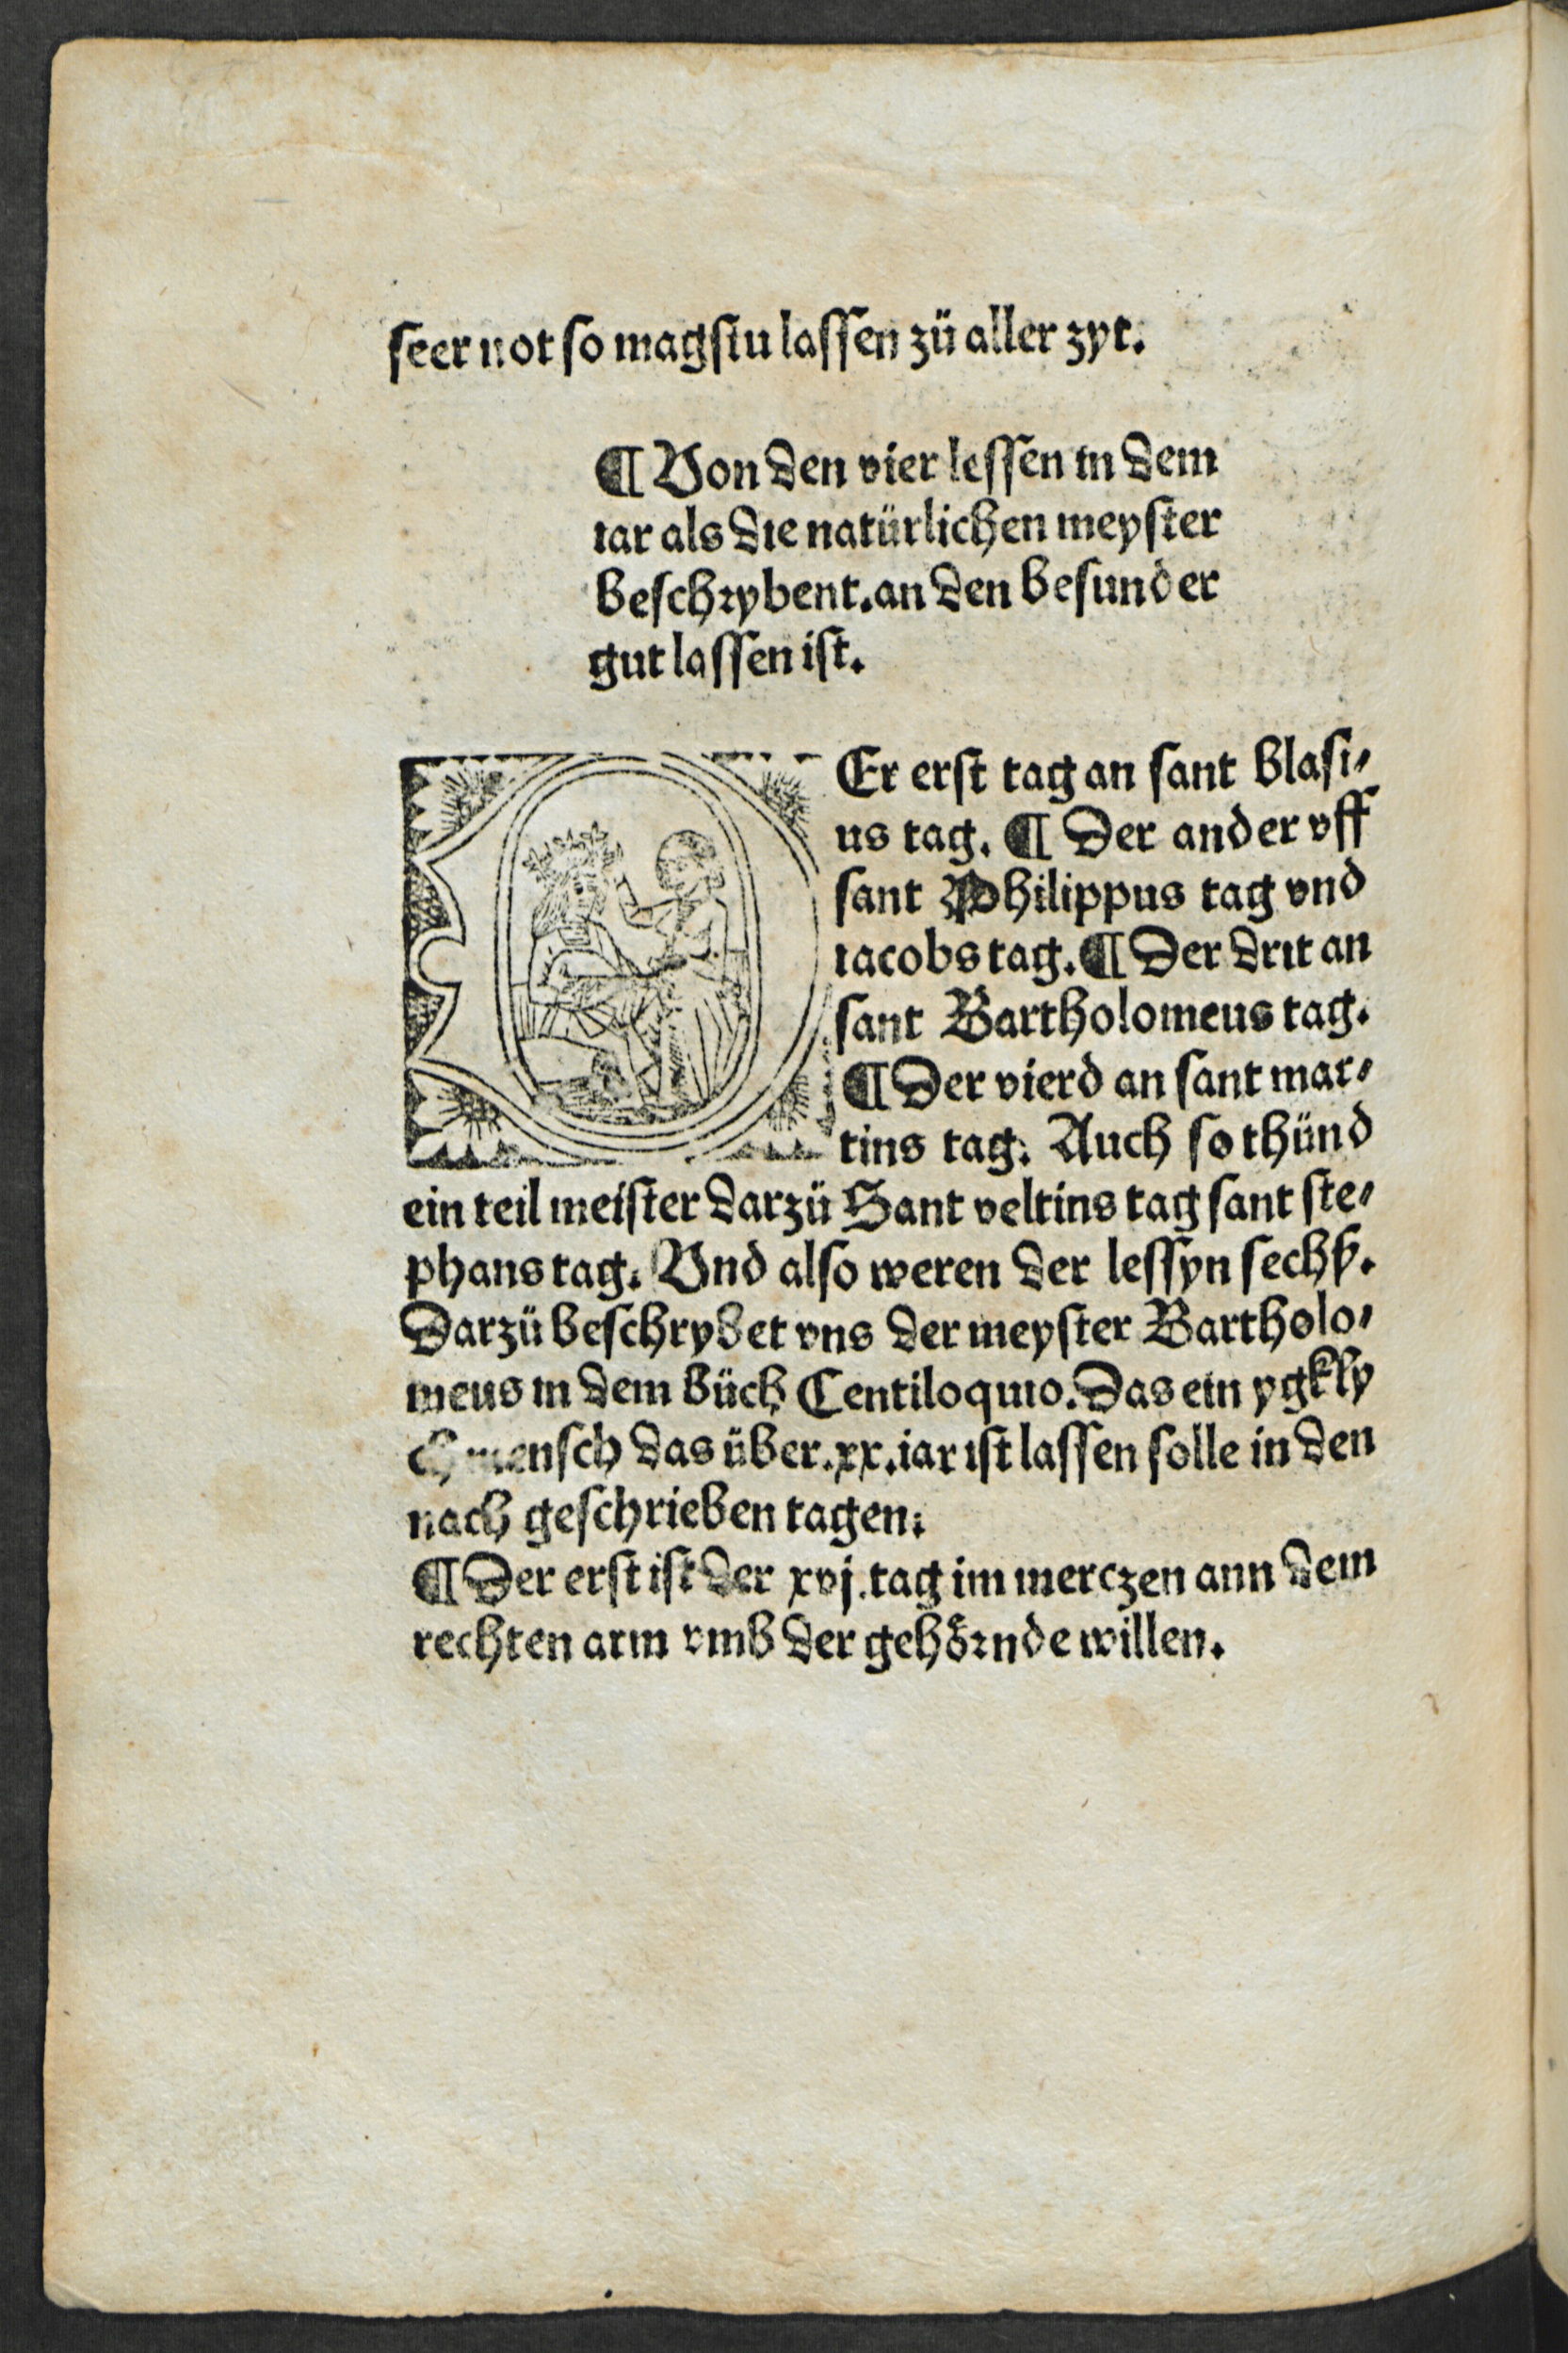 seer not so magstu lassen zü aller zyt.
¶ Von den vier lessen in dem
iar als die natürlichen meyster
beschrybent. an den besunder
gut lassen ist.
DEr erst tag an sant blasi⸗
us tag. ¶ Der ander vff
sant Philippus tag vnd
iacobs tag. ¶ Der drit an
sant Bartholomeus tag.
¶ Der vierd an sant mar⸗
tins tag. Auch so thünd
ein teil meister darzü Sant veltins tag sant ste⸗
phans tag. Vnd also weren der lessyn sechß.
Darzü beschrybet vns der meyster Bartholo⸗
meus in dem büch Centiloquio. Das ein ygkly
ch mensch das über .xx. iar ist lassen solle in den
nach geschrieben tagen.
¶ Der erst ist der xvj. tag im merczen ann dem
rechten arm vmb der gehörnde willen.